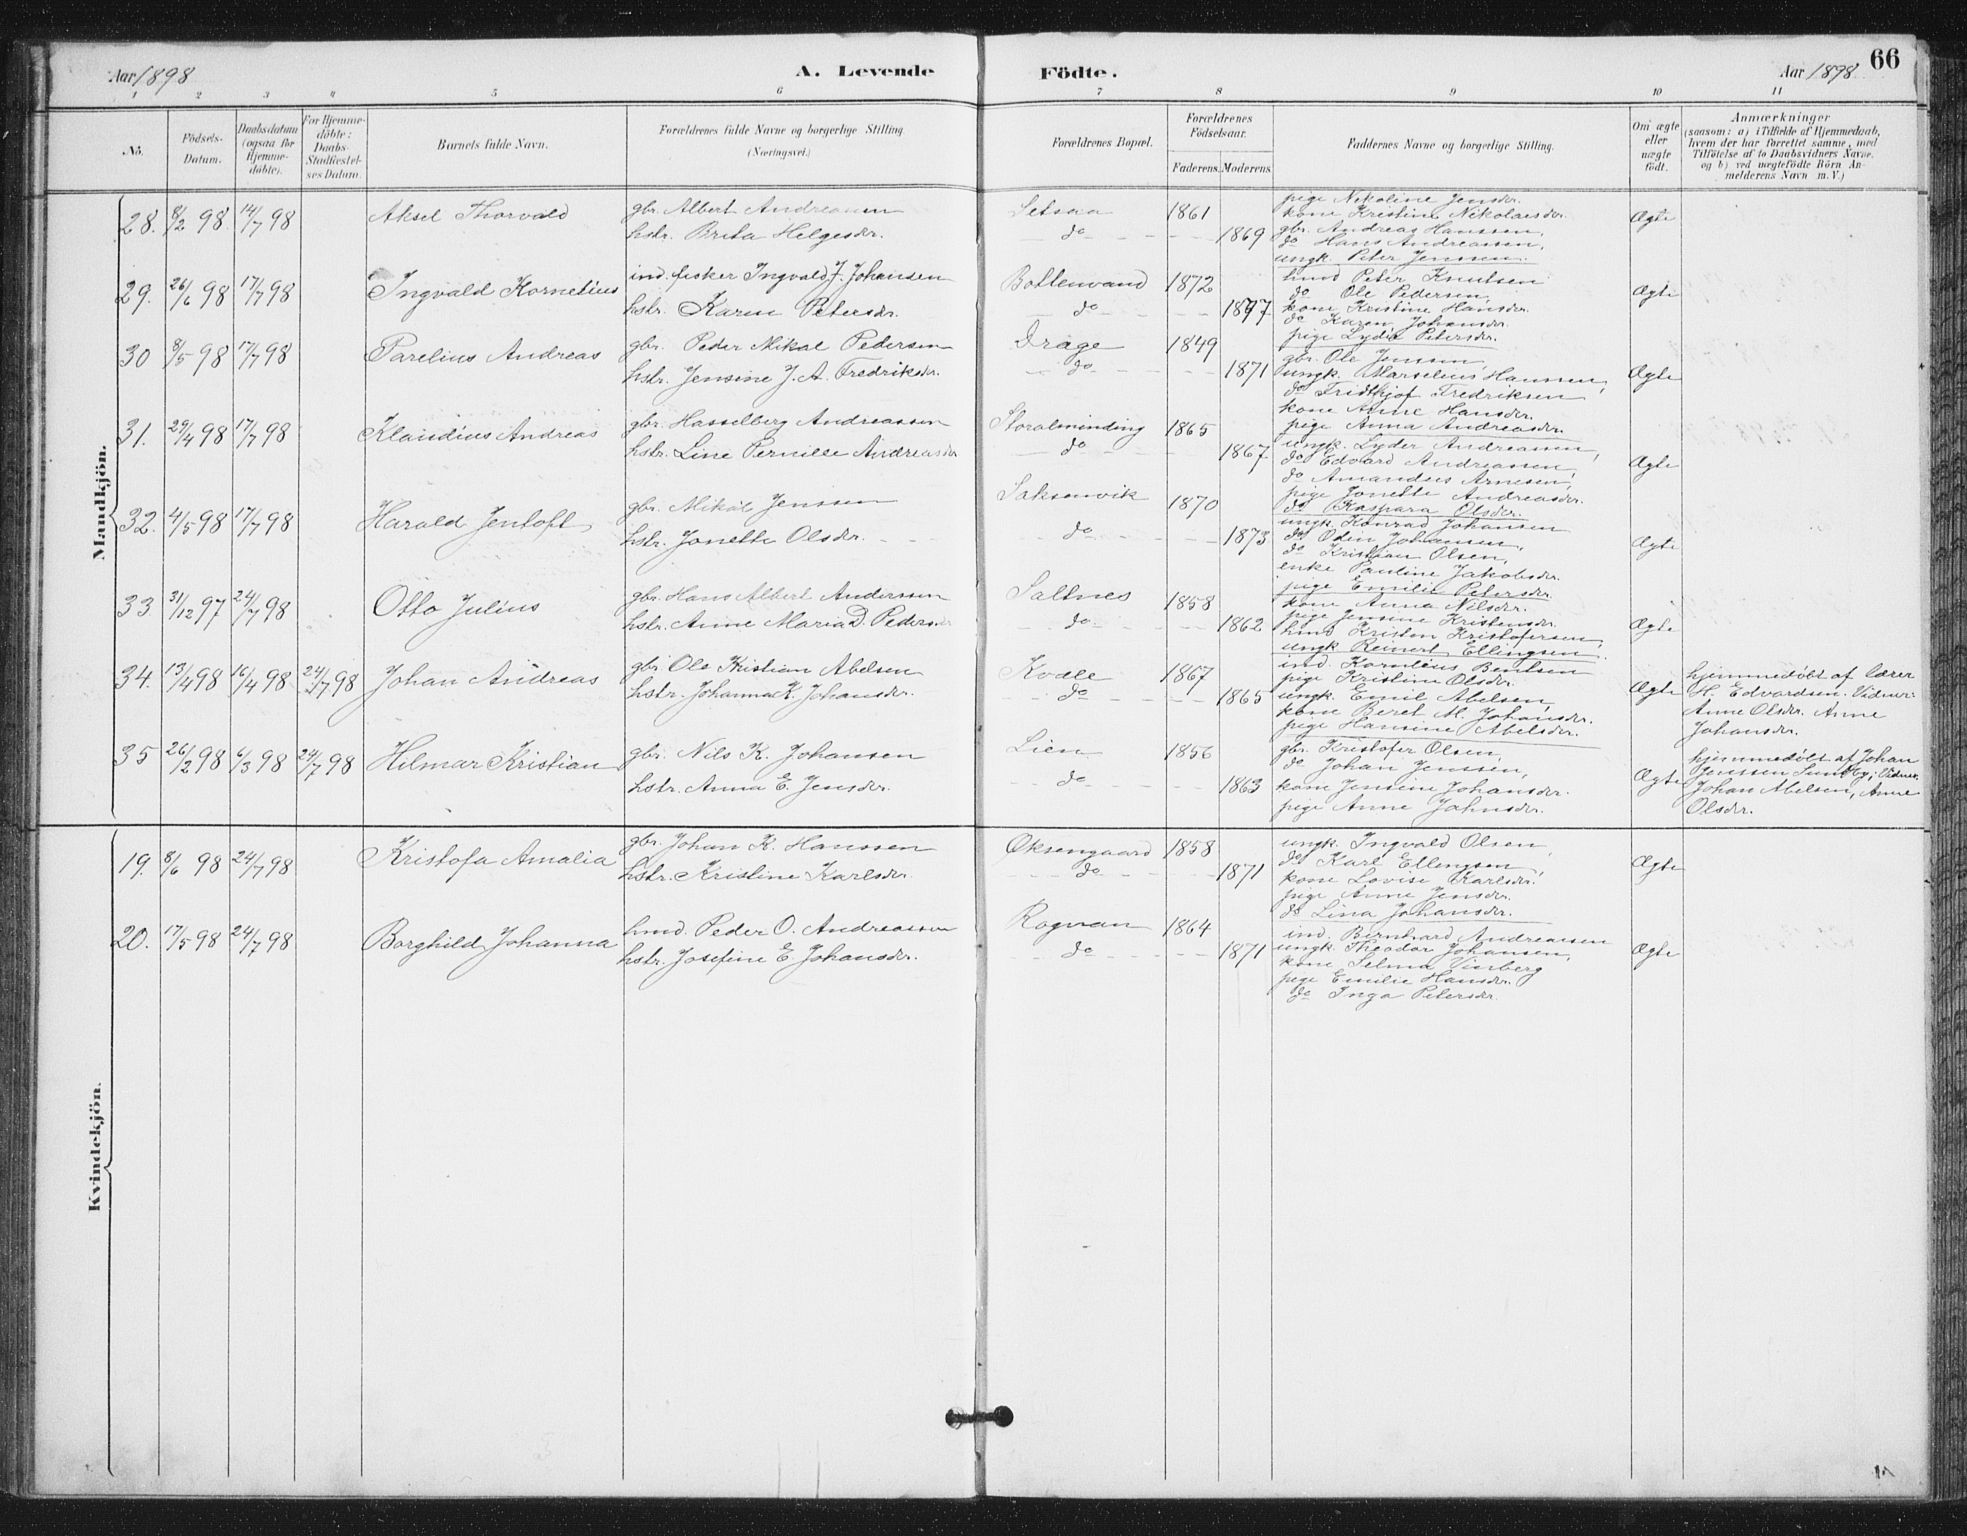 Aar 1898 A. Levende Födte. Aar 1898. 66
1 2 3 4 5 6 7 8 9 10 11
No. Födsels-Datum. Daabsdatum (ogsaa for Hjemme-döbte). For Hjemme-döbte: Daabs-Stadfæstel-ses Datum. Barnets fulde Navn. Forældrenes fulde Navne og borgerlige Stilling. (Næringsvei.) Forældrenes Bopæl. Forældrenes Födselsaar. Faderens. Moderens. Faddernes Navne og borgerlige Stilling. Om ægte eller uægte födt. Anmærkninger (saasom: a) i Tilfælde af Hjemmedaab, hvem der har forrettet samme, med Tilföielse af to Daabsvidners Navne, og b) ved uægtefödte Börn An-melderens Navn m. V.)
Mandkjön.
28. 8/2 98. 14/7 98 Aksel Thorvald gbr. Albert Andreassen Setsaa 1861 pige Nikoline Jensdr. Ægte
hstr. Brita Helgesdr. do 1869 kone Kristine Nikolaisdr.
gbr. Andreas Hanssen,
do Hans Andreassen,
ungk. Peter Jenssen.
29. 26/6 98 17/7 98 Ingvald Kornelius ind. fisker Ingvald J. Johansen Bottenvand 1872 hmd Peter Knutsen Ægte
hstr. Karen Petersdr. do 1897 do Ole Pedersen,
kone Kristine Hansdr.
do Karen Johansdr.
pige Lydia Petersdr.
30 8/5 98 17/7 98 Parelius Andreas gbr. Peder Mikal Pedersen Drage 1849 gbr. Ole Jenssen Ægte
hstr. Jensine J. A. Fredriksdr. do 1871 ungk. Marselius Hanssen,
do Fridthjof Fredriksen
kone Anne Hansdr.
pige Anna Andreasdr.
31. 29/4 98 17/7 98 Klaudius Andreas gbr. Hasselberg Andreassen Storalminding 1865 ungk. Lyder Andreassen, Ægte
hstr. Line Pernille Andreasdr do 1867 do Edvard Andreassen,
do Amandus Arnesen,
pige Jonette Andreasdr.
do Kaspara Olsdr.
32. 4/5 98 17/7 98 Harald Jentoft gbr. Mikal Jenssen Saksenvik 1870 ungk. Konrad Johansen Ægte
hstr. Jonette Olsdr. do 1873 do Oden Johansen,
do Kristian Olsen,
enke Pauline Jakobsdr.
pige Emilie Petersdr.
33 31/12 97 24/7 98 Otto Julius gbr. Hans Albert Andersen Saltnes 1858 kone Anna Nilsdr. Ægte
hstr. Anne Maria D. Pedersdr do 1862 pige Jensine Kristensdr.
hmd Kristen Kristofersen,
ungk Reinert Ellingsen.
34. 13/4 98 16/4 98 24/7 98 Johan Andreas gbr. Ole Kristian Abelsen Kvæle 1867 ind. Kornelius Bentsen Ægte hjemmedöbt af lærer
hstr. Johanna K. Johansdr. do 1865 pige Kristine Olsdr. H. Edvardsen. Vidner:
ungk. Emil Abelsen, Anne Olsdr. Anne
kone Beret M. Johansdr. Johansdr.
pige Hansine Abelsdr.
35 26/2 98 6/3 98 24/7 98 Hilmar Kristian gbr. Nils K. Johansen Lien 1856 gbr. Kristofer Olsen, Ægte hjemmedöbt af Johan
hstr. Anna E. Jensdr. do 1863 do Johan Jenssen, Jenssen Sundby; Vidner:
kone Jensine Johansdr. Johan Abelsen, Anne
pige Anne Jahnsdr. Olsdr.
Kvindekjön.
19. 8/6 98 24/7 98 Kristofa Amalia gbr. Johan K. Hanssen Oksengaard 1858 ungk. Ingvald Olsen, Ægte
hstr. Kristine Karlsdr. do 1871 do Karl Ellingsen,
kone Lovise Karlsdr.
pige Anne Jensdr.
do Lina Johansdr.
20. 17/5 98 24/7 98 Borghild Johanna hmd. Peder O. Andreassen Rognan 1864 ind. Bernhard Andreassen Ægte
hstr. Josefine E. Johansdr. do 1871 ungk. Theodor Johansen,
kone Selma Vinberg
pige Emilie Hansdr.
do Inga Petersdr.